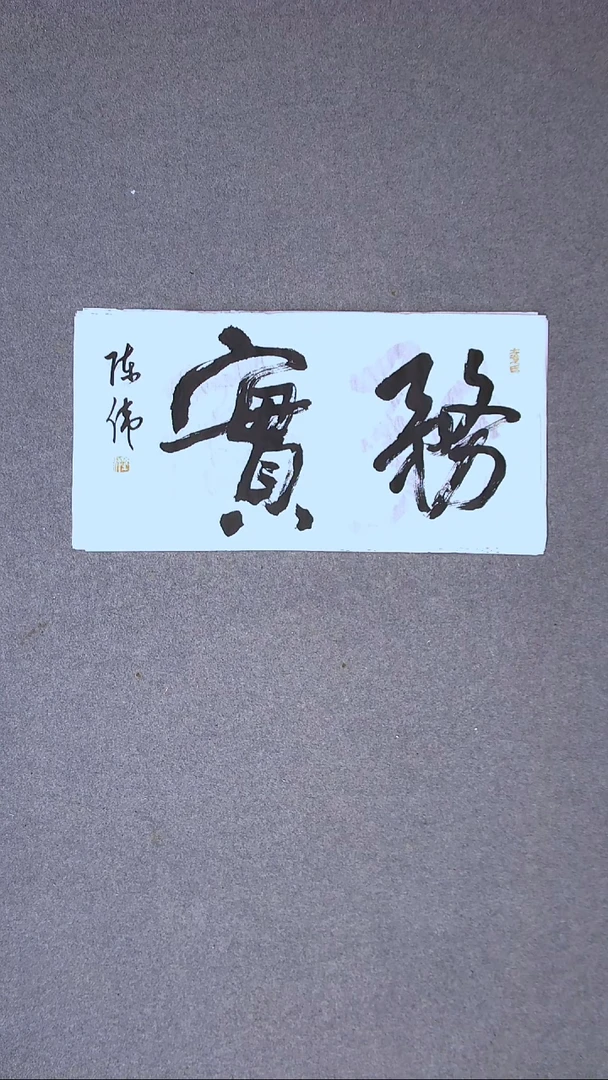 務實
陈伟